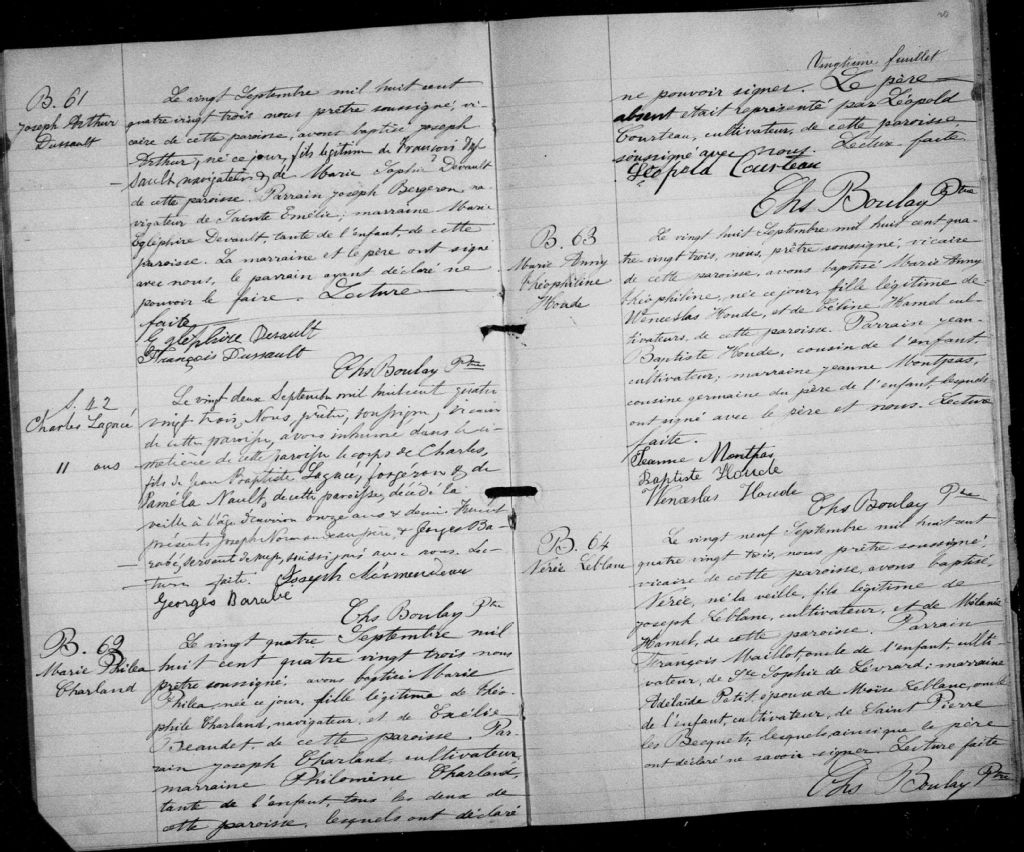 B. 61
Joseph Arthur
Dussault
Le vingt Septembre mil huit cent
quatre vingt trois nous prêtre soussigné, vi-
caire de cette paroisse, avons baptisé Joseph
Arthur, né ce jour, fils légitime de François Dus-
sault, navigateur & de Marie Sophie Devault
de cette paroisse. Parrain Joseph Bergeron, na-
vigateur de Sainte Emélie; marraine Marie
Egléphire Devault, tante de l'enfant, de cette
paroisse. La marraine et le père ont signé
avec nous, le parrain ayant déclaré ne
pouvoir le faire. Lecture
faite
Egléphire Desault
François Dussault
Chs Boulay Ptre
S. 42
Charles Lagacé
11 ans
Le vingt deux Septembre mil huit cent quatre
vingt trois, Nous, prêtre, soussigné, vicaire
de cette paroisse, avons inhumé dans le ci-
metière de cette paroisse le corps de Charles,
fils de Jean Baptiste Lagacé, forgeron & de
Paméla Nault, de cette paroisse, décédé la
veille à l'âge d'environ onze ans & demi. Furent
présents Joseph Normandeau père, & Georges Ba-
rabé, servant de messe, soussignés avec nous. Lec-
ture faite. Joseph Normendeau
Georges Barabé
Chs Boulay Ptre
B. 62
Marie Philea
Charland
Le vingt quatre Septembre mil
huit cent quatre vingt trois nous
prêtre soussigné, avons baptisé Marie
Philea, née ce jour, fille légitime de Théo-
phile Charland, navigateur, et de Exélie
Beaudet, de cette paroisse. Par-
rain Joseph Charland, cultivateur,
marraine Philomène Charland,
tante de l'enfant, tous les deux de
cette paroisse, lesquels ont déclaré
Vingtième feuillet
ne pouvoir signer. Le père
absent était représenté par Léopold
Courteau, cultivateur, de cette paroisse
soussigné avec nous. Lecture faite
Léopold Courteau
Chs Boulay Ptre
B. 63
Marie Anny
Théophiline
Houde
Le vingt huit Septembre mil huit cent qua-
tre vingt trois, nous, prêtre soussigné, vicaire
de cette paroisse, avons baptisé Marie Anny
Théophiline, née ce jour, fille légitime de
Wenceslas Houde, et de Céline Hamel cul-
tivateurs, de cette paroisse. Parrain Jean-
Baptiste Houde, cousin de l'enfant,
cultivateur; marraine Jeanne Montpas,
cousine germaine du père de l'enfant lesquels
ont signé avec le père et nous. Lecture
faite.
Jeanne Montpas
Baptiste Houde
Wenceslas Houde
Chs Boulay Ptre
B. 64
Nérée Leblanc
Le vingt neuf Septembre mil huit cent
quatre vingt trois, nous prêtre soussigné,
vicaire de cette paroisse, avons baptisé,
Nérée, né la veille, fils légitime de
Joseph Leblanc, cultivateur, et de Mélanie
Hamel, de cette paroisse. Parrain
François Maillot, oncle de l'enfant, culti-
vateur, de Ste Sophie de Lévrard; marraine
Adélaïde Petit, épouse de Moïse Leblanc, oncle
de l'enfant, cultivateur, de Saint Pierre
les Becquets, lesquels, ainsi que le père
ont déclaré ne savoir signer. Lecture faite
Chs Boulay Ptre